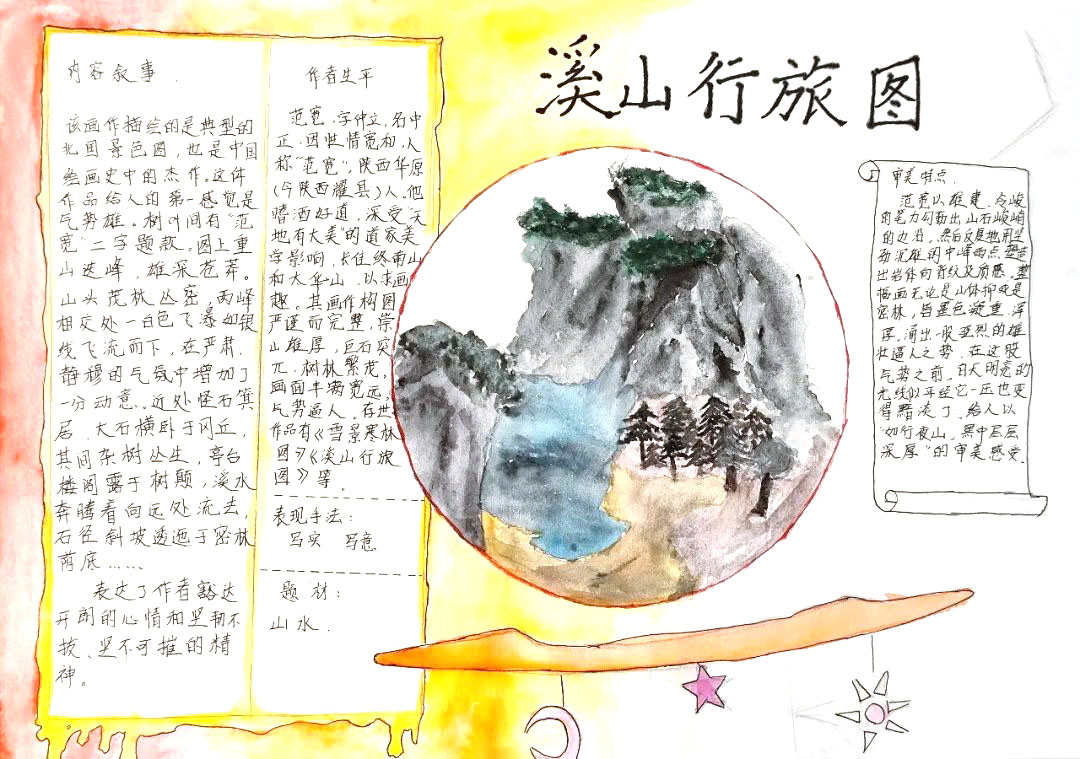 溪山行旅图
内容叙事.
该画作描绘的是典型的
北国景色图,也是中国
绘画史中的杰作。这件
作品给人的第一感觉是
气势雄。树叶间有"范
宽"二字题款。图上重
山迭峰,雄深苍莽。
山头茂林丛密,两峰
相交处一白色飞瀑如银
线飞流而下,在严肃.
静穆的气氛中增加了
一分动意.近处怪石箕
居.大石横卧于冈丘,
其间杂树丛生,亭台
楼阁露于树颠,溪水
奔腾着向远处流去,
石径斜坡透迤于密林
荫底……
表达了作者豁达
开阔的心情和坚韧不
拔、坚不可摧的精
神。
作者生平
范宽.字仲立,名中
正.因性情宽和,人
称"范宽",陕西华原
(今陕西耀县)人。他
嗜酒好道,深受"天
地有大美"的道家美
学影响.长住终南山
和太华山.以求画
趣。其画作构图
严谨而完整,崇
山雄厚,巨石突
兀.树林繁茂,
画面丰满宽远,
气势逼人.存世
作品有《雪景寒林
图》《溪山行旅
图》等.
表现手法:
写实 写意
题材:
山水.
审美特点.
范宽以雄健、冷峻
的笔力勾勒出山石峻峭
的边沿,然后反复地用坚
劲沉雄的中峰雨点
出岩体向背纹及质感.整
幅画无论是山体抑或是
密林,皆墨色凝重、浑
厚,涌出一股强烈的雄
壮逼人之势.在这股
气势之前,日天明亮的
光线似乎经它一压也变
得黯淡了.给人以
"如行夜山,黑中层层
深厚"的审美感受.